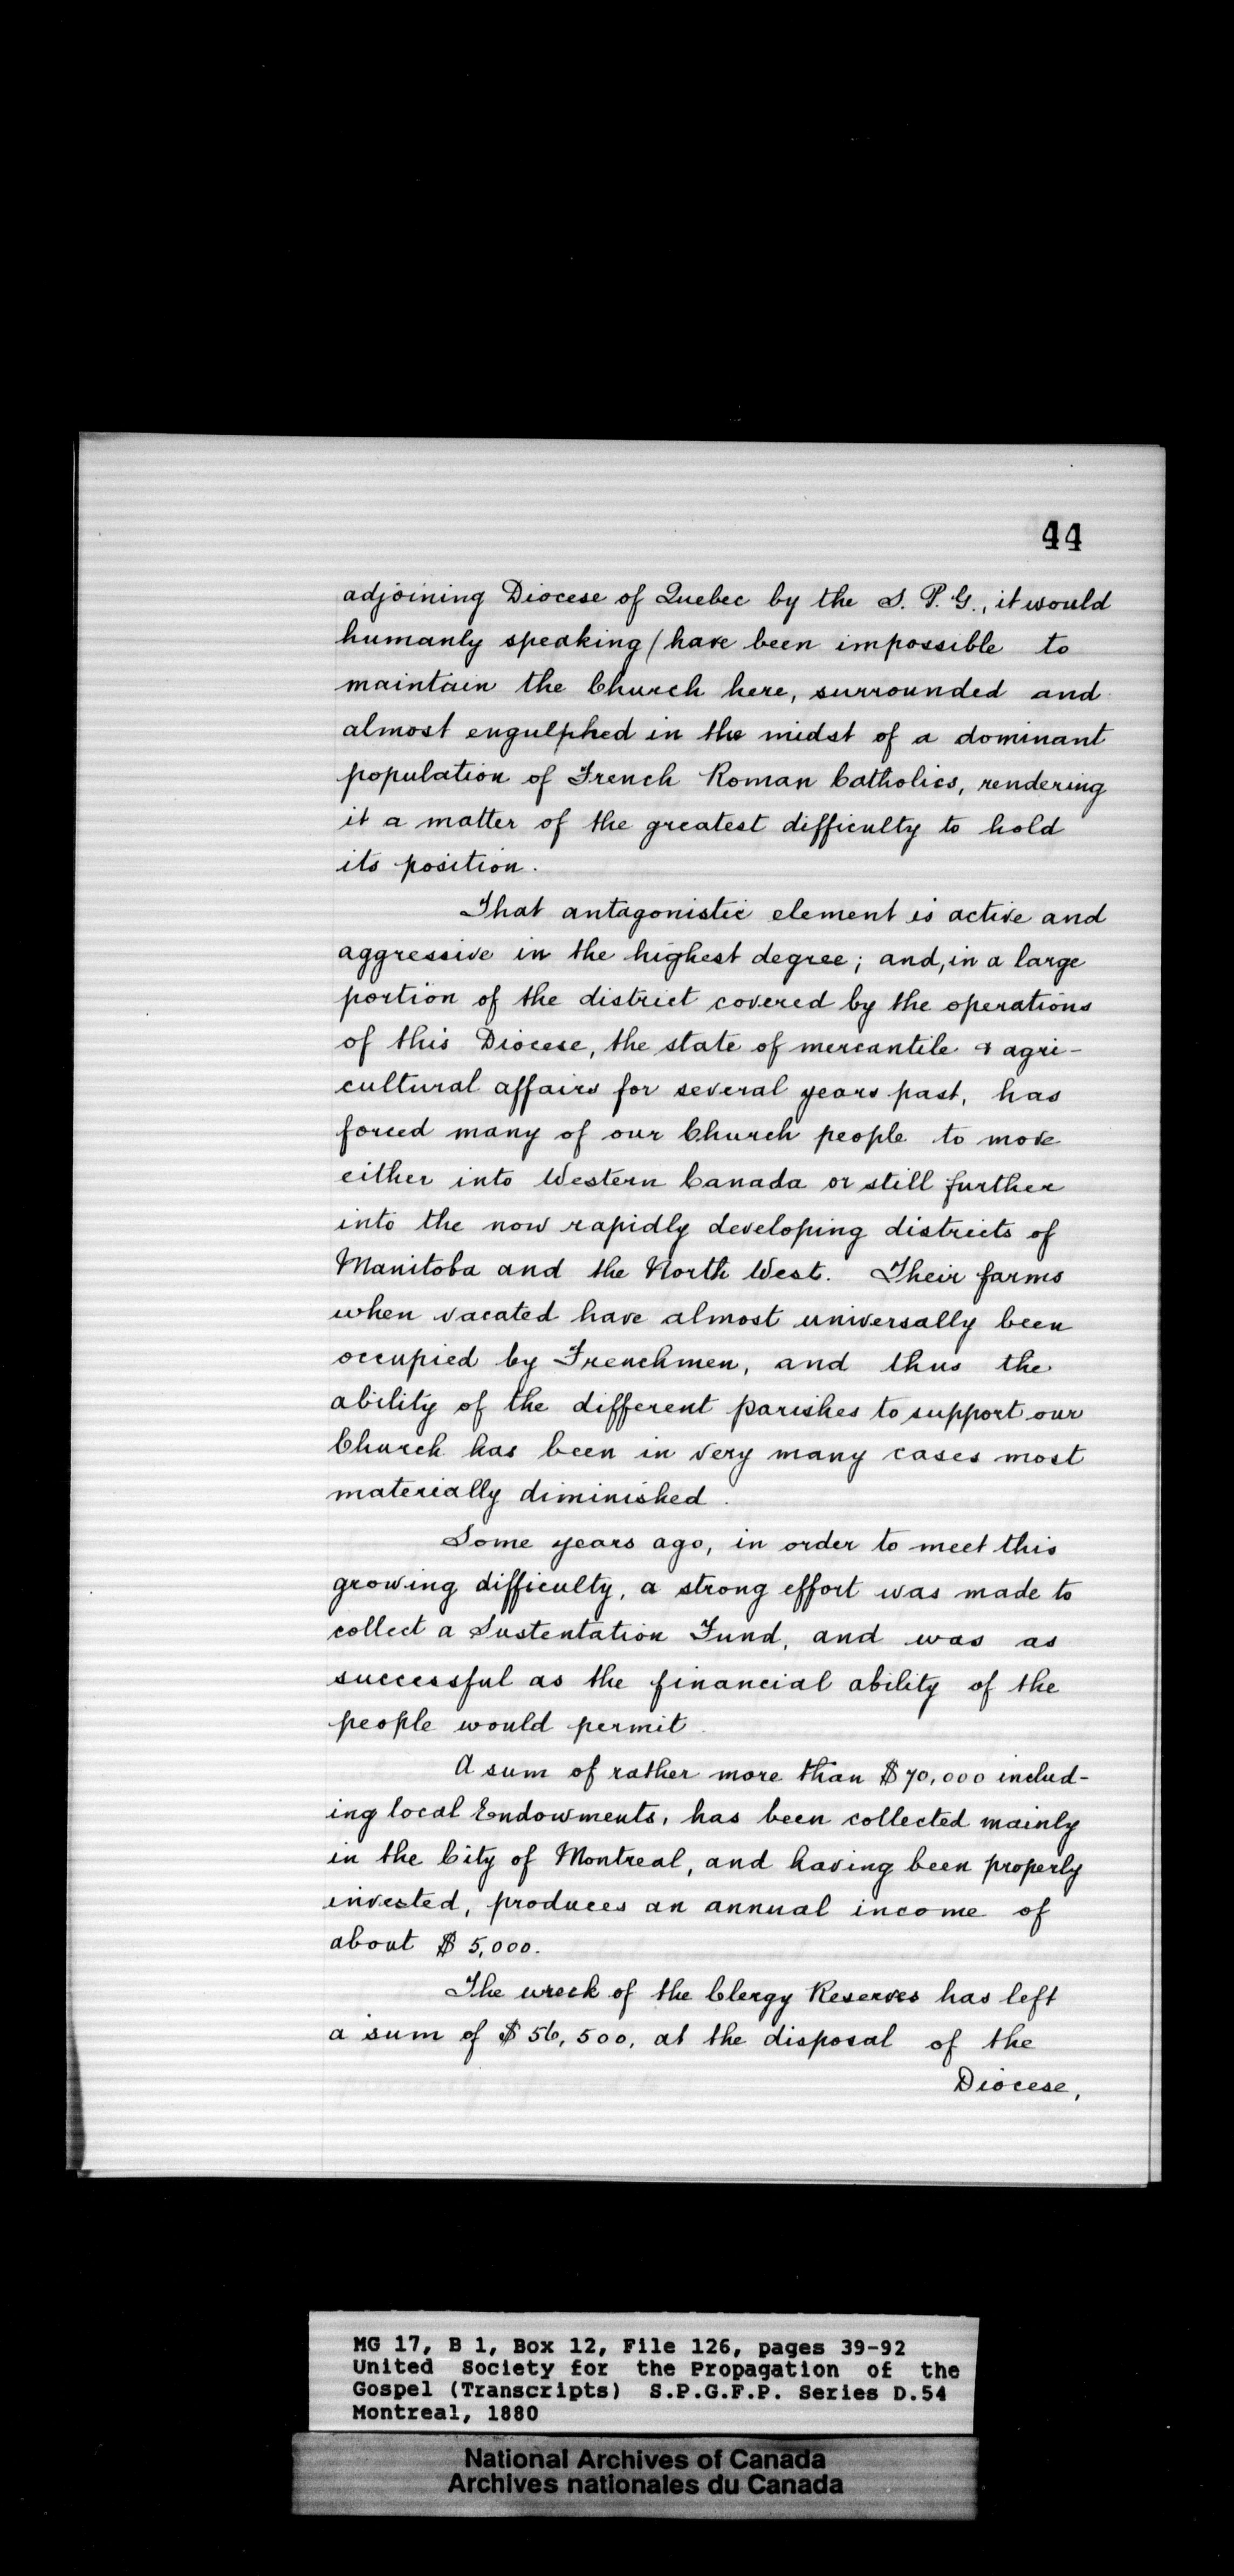 44
adjoining Diocese of Quebec by the S. P. G., it would
humanly speaking / have been impossible to
maintain the Church here, surrounded and
almost engulphed in the midst of a dominant
population of French Roman Catholics, rendering
it a matter of the greatest difficulty to hold
its position.
That antagonistic element is active and
aggressive in the highest degree; and, in a large
portion of the district covered by the operations
of this Diocese, the state of mercantile & agri-
cultural affairs for several years past, has
forced many of our Church people to move
either into Western Canada or still further
into the now rapidly developing districts of
Manitoba and the North West. Their farms
when vacated have almost universally been
occupied by Frenchmen, and thus the
ability of the different parishes to support our
Church has been in very many cases most
materially diminished.
Some years ago, in order to meet this
growing difficulty, a strong effort was made to
collect a Sustentation Fund, and was as
successful as the financial ability of the
people would permit.
A sum of rather more than $70,000 includ-
ing local Endowments, has been collected mainly
in the City of Montreal, and having been properly
invested, produces an annual income of
about $5,000.
The wreck of the Clergy Reserves has left
a sum of $56,500, at the disposal of the
Diocese,
MG 17, B 1, Box 12, File 126, pages 39-92
United Society for the Propagation of the
Gospel (Transcripts) S.P.G.F.P. Series D.54
Montreal, 1880
National Archives of Canada
Archives nationales du Canada